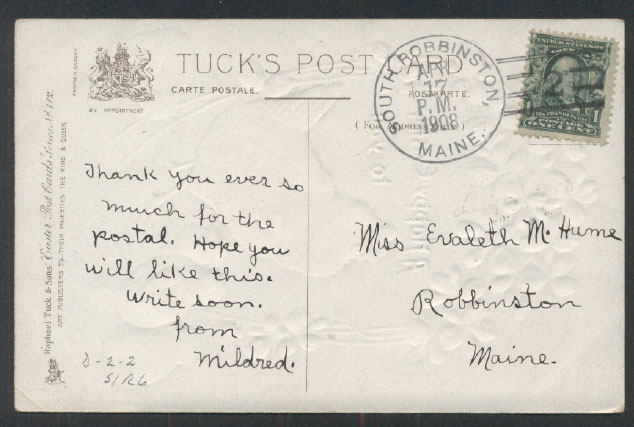 TUCK'S POST CARD
CARTE POSTALE.
POSTKARTE.
BY APPOINTMENT
(For Address Only.)
SOUTH ROBBINSTON,
APR
17
P.M.
1908
MAINE.
2
ONE CENT
Raphael Tuck & Sons' "Easter" Post Cards Series No. 112.
ART PUBLISHERS TO THEIR MAJESTIES THE KING & QUEEN.
Thank you ever so
much for the
postal. Hope you
will like this.
Write soon.
from
Mildred.
D-2-2
S/R6
Miss Evaleth M. Hume
Robbinston
Maine.